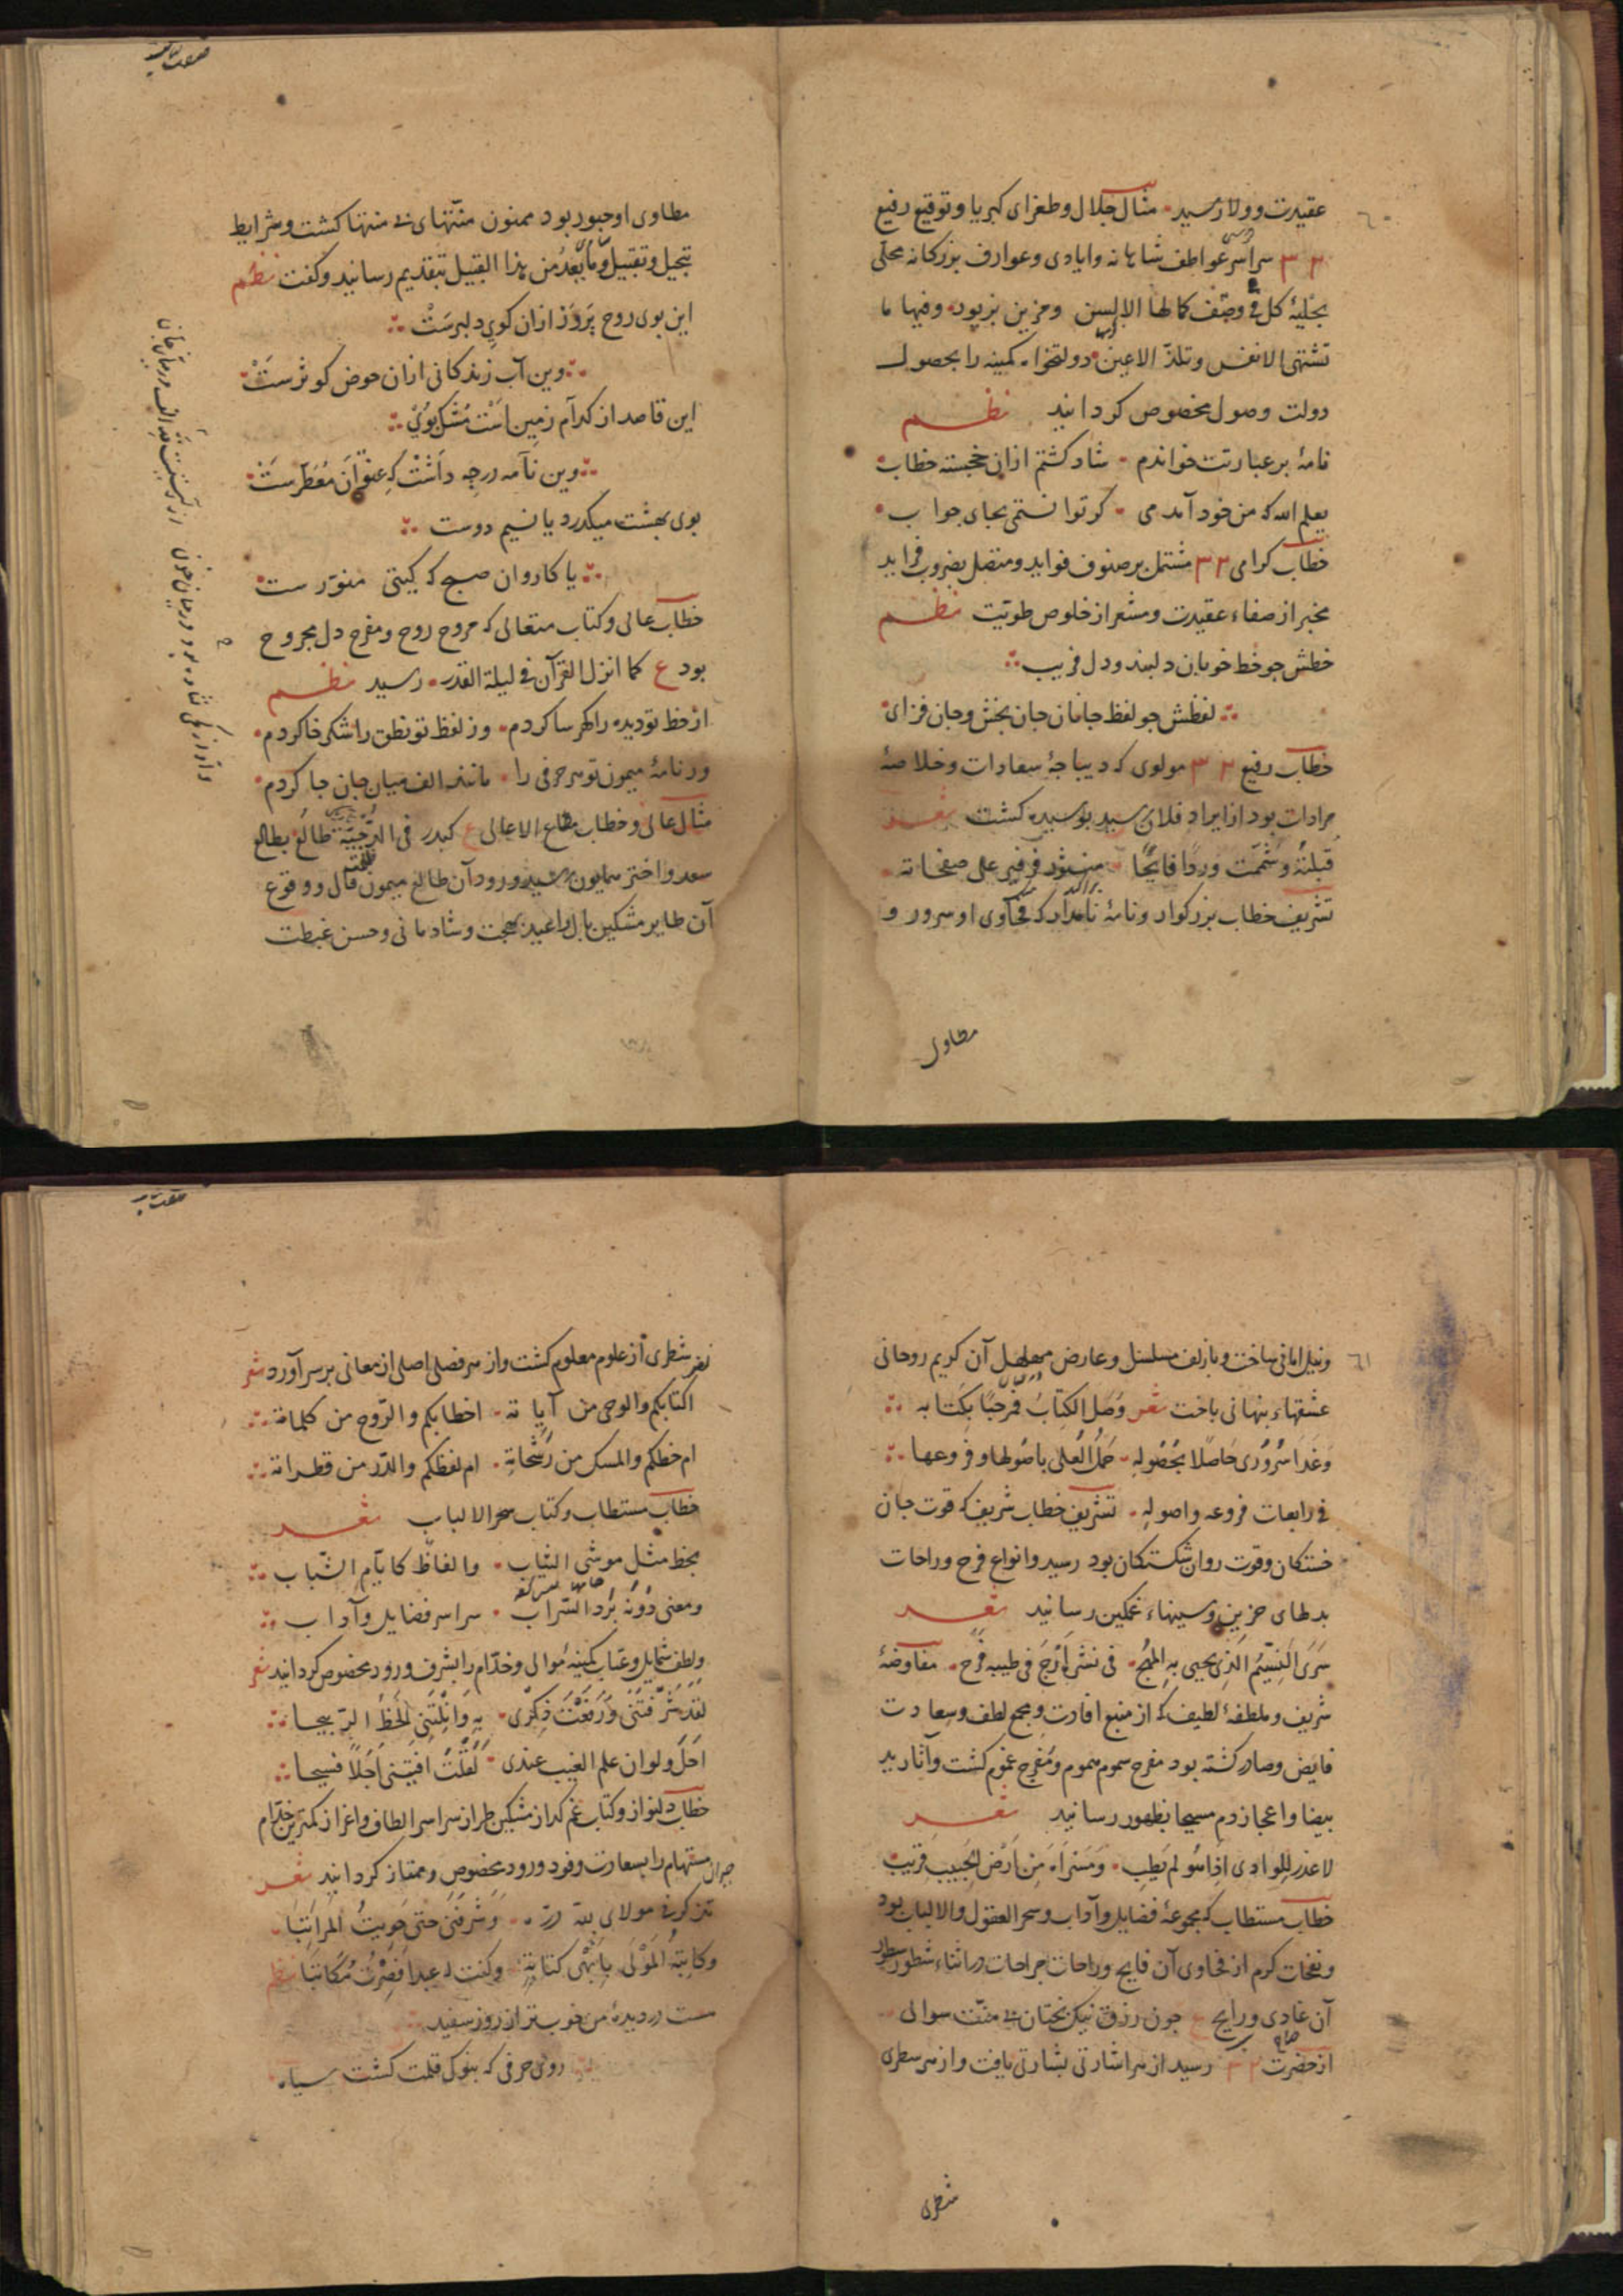 ٦٠
عقیدت و ولا رسید مثال جلال و طغرای کبریا و توقیع رفیع
٣٣ سراسر عواطف شاهانه و ایادی و عوارف بزرکانه محلّی
بحلیهٔ کل فی وصف کمالها الالسن و مزین بزیور و فیها ما
تشتهی الانفس و تلذّ الاعین دولتخواه کمینه را بحصول
دولت وصول مخصوص کردانید نظم
نامهٔ بر عبارتت خواندم شاد کشتم ازان خجسته خطاب
یعلم الله که من خود آمدمی کر توانستمی بجای جواب
خطاب کرامی ٣٣ مشتمل بر صنوف فواید و متصل بضروب فراید
مخبر از صفاء عقیدت و مشعر از خلوص طویّت نظم
خطش جو خط خوبان دلبند و دل فریب
لفظش جو لفظ جانان جان بخش و جان فزای
خطاب رفیع ٣٣ مولوی که دیباجهٔ سعادات و خلاصهٔ
مرادات بود از ایراد فلان رسید بوسیده کشت شعر
قبلتهُ و شممت وردًا فایحًا
تشریف خطاب بزرکوار و نامهٔ نامدار که فحاوی او سرور و
مطاوی
مطاوی او حبور بود ممنون منّتهای بی منتها کشت و شرایط
تبجیل و تقبیل و ما یعدّ من هذا القبیل بتقدیم رسانید و کفت نظم
این بوی روح پرور ازان کوی دلبرست
وین آب زندکانی ازان حوض کوثرست
این قاصد از کدام زمین است مشک بوی
وین نامه درجه داشت که عنوان معطرست
بوی بهشت میکذرد یا نسیم دوست
یا کاروان صبح که کیتی منوّرست
خطاب عالی و کتاب متعالی که مروح روح و مفرح دل مجروح
بود ع کما انزل القرآن فی لیلة القدر رسید نظم
از خط تو دیده را کهرسا کردم وز لفظ تو نطق را شکرخا کردم
ور نامهٔ میمون تو هر حرفی را مانند الف میان جان جا کردم
مثال عالی و خطاب مطاع الاعالی ع کبدر فی الدّجیّة طالع بطالع
سعد و اختر همایون رسید و ورود آن طالع میمون فال و وقوع
آن طایر مشکین بال را عید بهجت و شادمانی و حسن غبطت
٦١
و نیل امانی ساخت و با زلف مسلسل و عارض مهلهل آن کریم روحانی
عشقهاء پنهانی باخت شعر وصل الکتاب فمرحبًا بکتابه
و غدا سروری حاصلا بحصوله حمل العلی باصولها و فروعها
فی رایعات فروعه و اصوله تشریف خطاب شریف که قوت جان
خستکان و قوت روان شکستکان بود رسید و انواع فرح و راحات
بدلهای حزین و سینهاء غمکین رسانید شعر
سری النسیم الذی یحیی به المهج فی نشره ارج فی طیبه فرح مفاوضهٔ
شریف و ملطفهٔ لطیف که از منبع افادت و مجمع لطف و سعادت
فایض و صادر کشته بود مفرح سموم هموم و مفرج غموم کشت و آثار ید
بیضا و اعجاز دم مسیحا بظهور رسانید شعر
لا عذر للوادی اذا هو لم یطب و مسراه من ارض الحبیب قریب
خطاب مستطاب که مجموعهٔ فضایل و آداب و سحر العقول و الالباب بود
و نفحات کرم از فحاوی آن فایح و راحات جراحات در اثناء شطور سطور
آن غادی و رایح ع جون رزق نیک بختان بی منّت سوالی
از حضرت ٣٣ رسید از هر اشارتی بشارتی یافت و از هر سطری
شطری
شطری از علوم معلوم کشت و از هر فصلی اصلی از معانی بر سر آورد شعر
اکتابکم والوحی من آیاته اخطابکم والرّوح من کلماته
ام خطکم والمسک من رشحاته ام لفظکم والدّر من قطراته
خطاب مستطاب و کتاب سحر الالباب شعر
بخط مثل موشی الثیاب و الفاظ کایّام الشّباب
و معنی دونه برد الشّراب سراسر فضایل و آداب
و لطف شمایل و عتاب کمینهٔ موالی و خدّام را بشرف ورود مخصوص کردانید شعر
لقد شرّفتنی و رفعت ذکری به
احل و لو ان علم الغیب عندی لقلت افیتنی اجلا فسیحا
خطاب دلنواز و کتاب غم کداز مشکین طراز سراسر الطاف و اعزاز کمترین خدّام
مستهام را بسعادت وفود و ورود مخصوص و ممتاز کردانید شعر
و شرفنی حتی حویت المراتبا
و کاتبه المولی بابهی کتابة و کنت له عبدا فصرت مکاتبا نظم
هست در دیدهٔ من خوبتر از روز سفید
روی حرفی که بنوک قلمت کشت سیاه